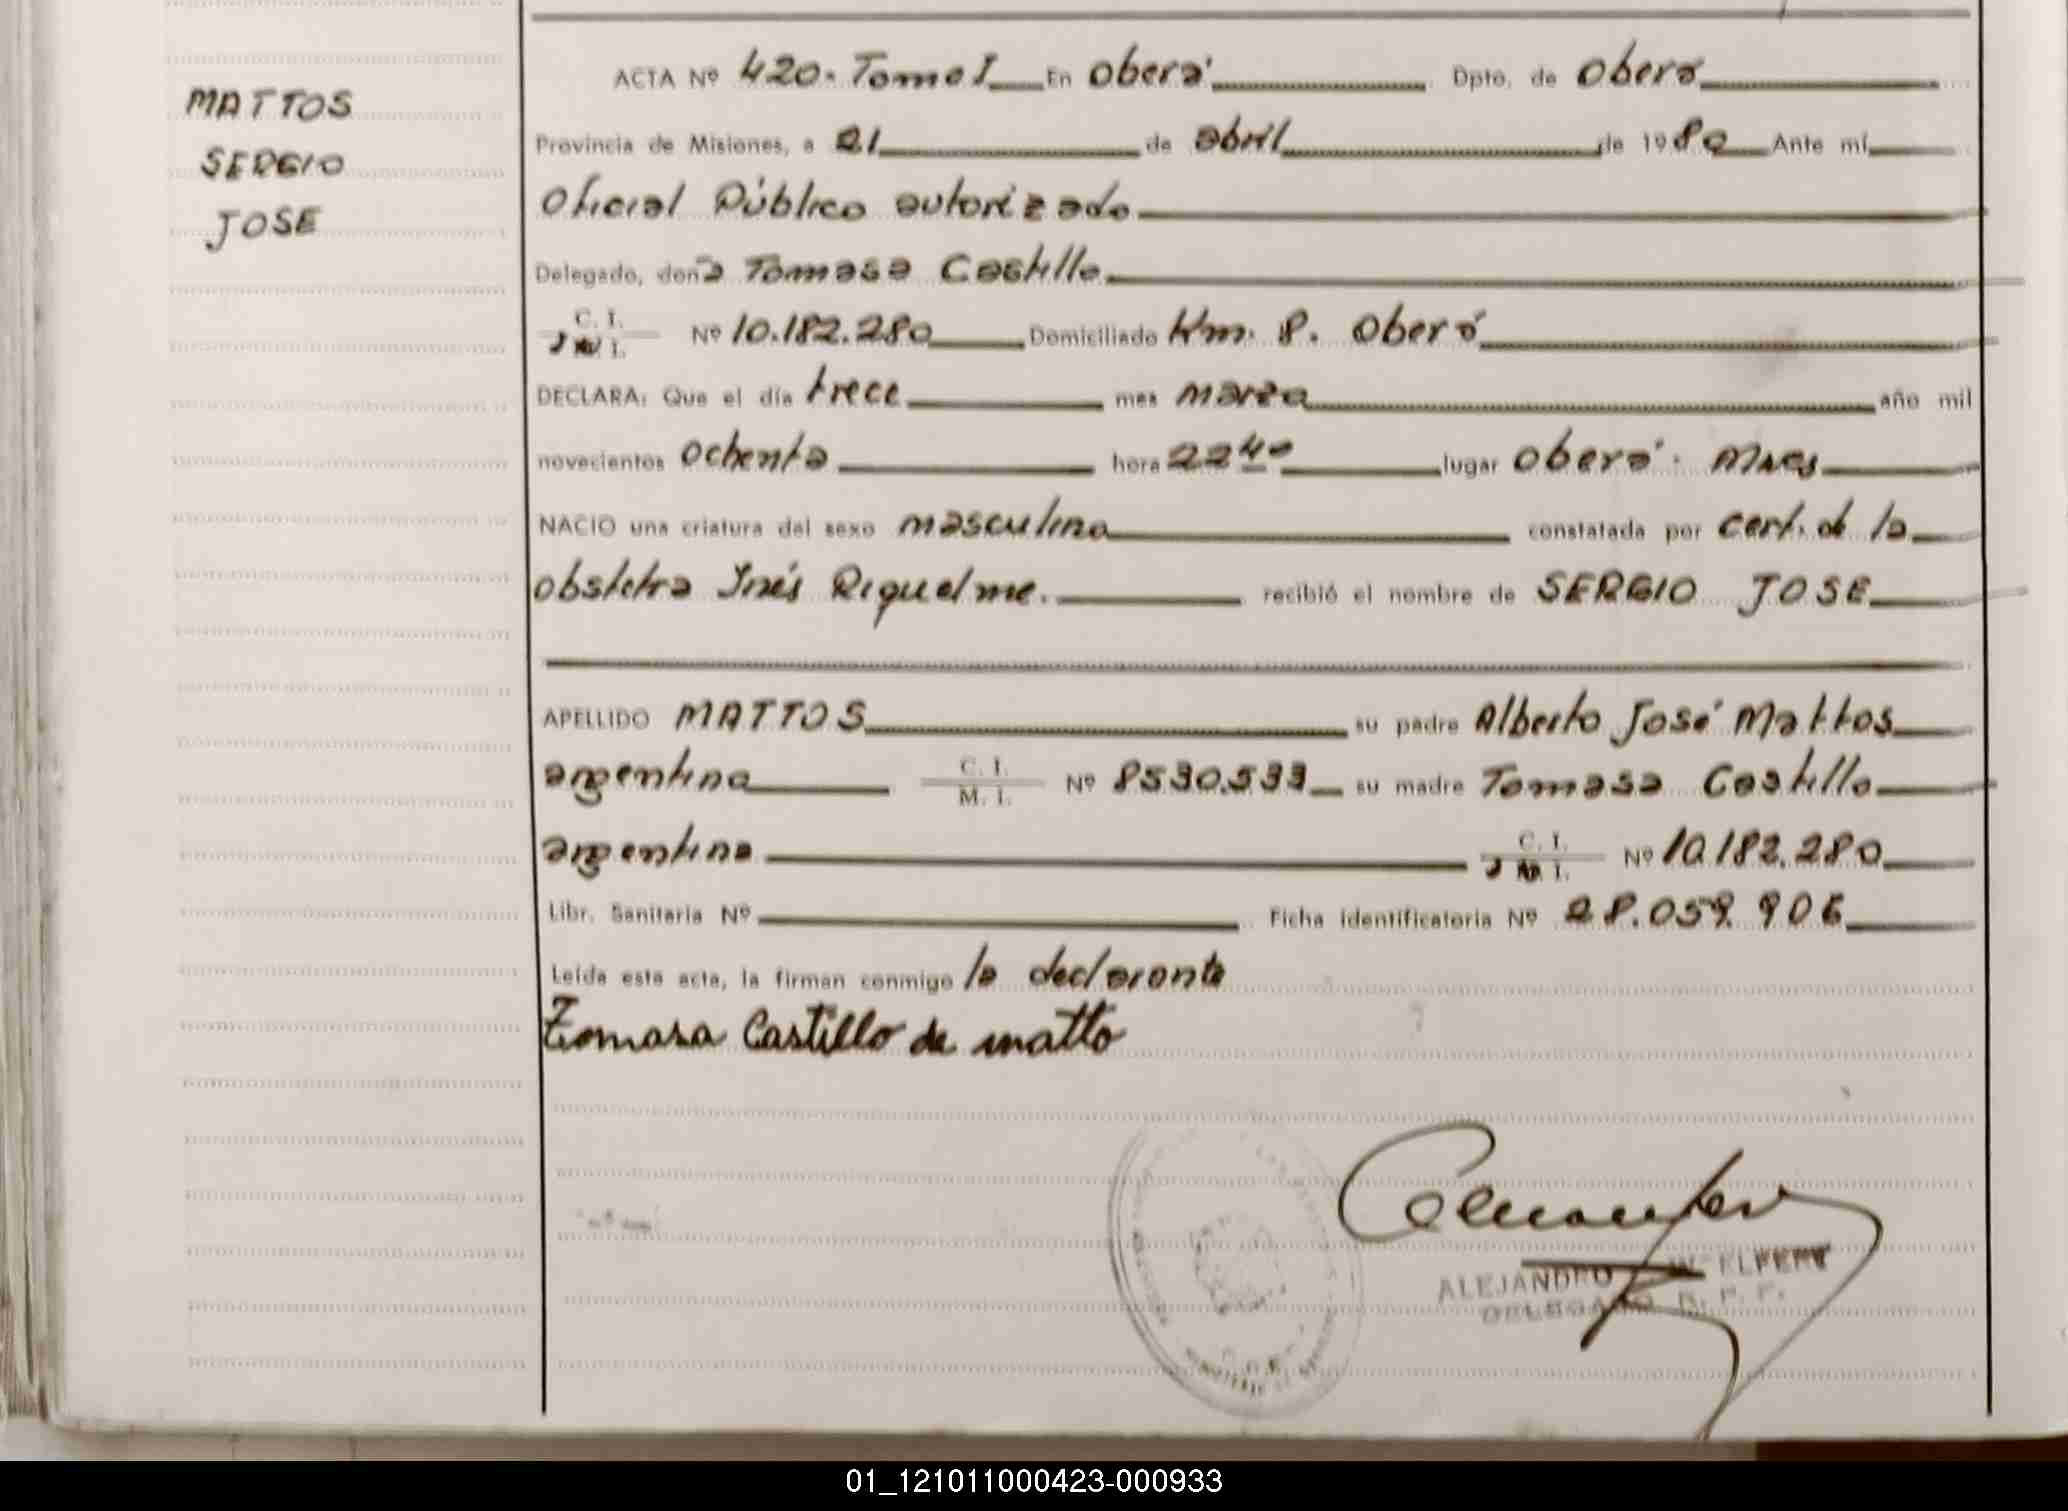 MATTOS
SERGIO
JOSE
ACTA Nº 420. Tomo I En Oberá Dpto. de Oberá
Provincia de Misiones, a 21 de abril de 1980 Ante mí
Oficial Público autorizado
Delegado, donã Tomasa Castillo
C. I. Nº 10.182.280 Domiciliado Km. 8. Oberá
DECLARA: Que el día trece mes marzo año mil
novecientos ochenta hora 22 40 lugar Oberá. Mnes
NACIO una criatura del sexo masculino constatada por cert. de la
obstetra Inés Riquelme. recibió el nombre de SERGIO JOSE
APELLIDO MATTOS su padre Alberto José Mattos
argentino C. I. M. I. Nº 8530.533 su madre Tomasa Castillo
argentina C. I. Nº 10.182.280
Libr. Sanitaria Nº Ficha identificatoria Nº 28.059.906
Leída esta acta, la firman conmigo la declarante
Tomasa Castillo de matto
ALEJANDRO W. ELFERT
DELEGADO R. P. P.
01_121011000423-000933